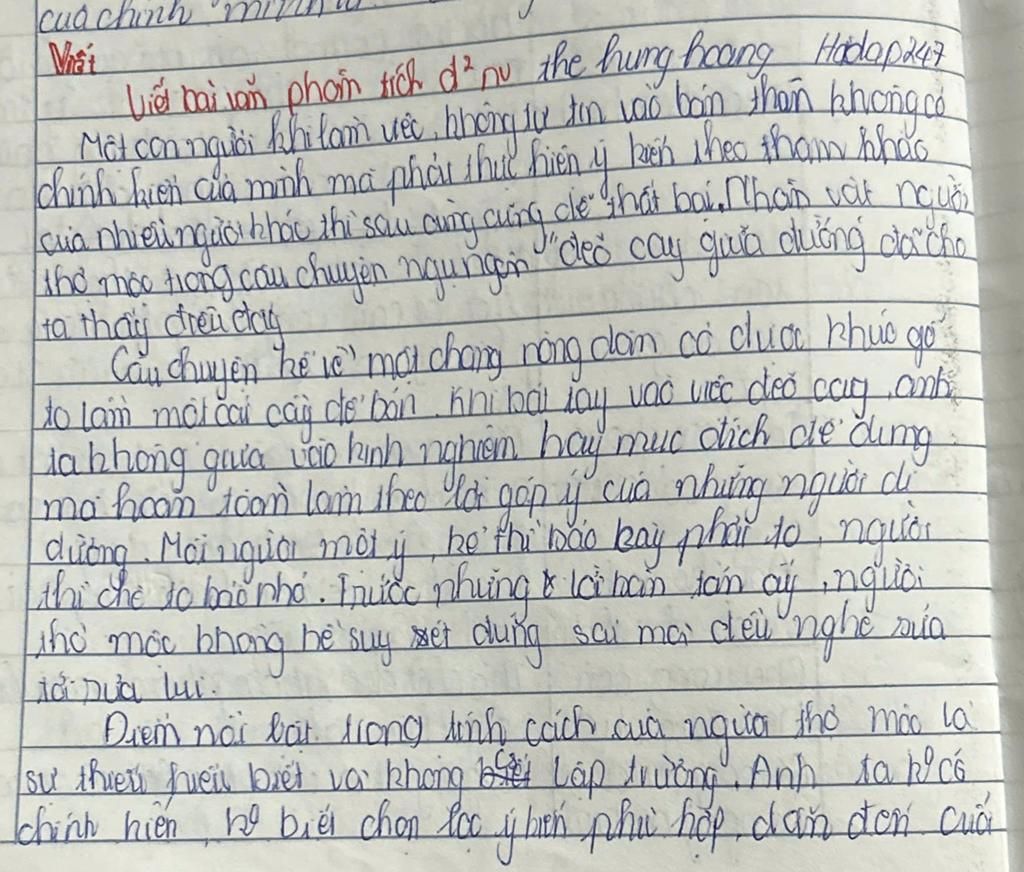 của chính mình
Viết
Viết bài văn phân tích đ² nv the hung hoang Hoidap247
Một con người khi làm việc, không tự tin vào bản thân không có
chính kiến của mình mà phải thực hiện ý kiến theo tham khảo
của nhiều người khác thì sau cùng cũng dễ thất bại. Nhân vật người
thợ mộc trong câu chuyện ngụ ngôn "đẽo cày giữa đường đã cho
ta thấy điều đấy
Câu chuyện kể về một chàng nông dân có được khúc gỗ
to làm một cái cày để bán. Khi bắt tay vào việc đẽo cày, anh
ta không giựa vào kinh nghiệm hay mục đích để dùng
mà hoàn toàn làm theo lời góp ý của những người đi
đường. Mỗi người một ý, kẻ thì bảo bày phải to, người
thì chê to bảo nhỏ. Trước những lời bàn tán ấy, người
thợ mộc không hề suy xét đúng sai mà đều nghe sửa
tới sửa lui.
Điểm nổi bật trong tính cách của người thợ mộc là
sự thiếu hiểu biết và không có lập trường. Anh ta k° có
chính kiến, k° biết chọn lọc ý kiến phù hợp, dẫn đến cuối